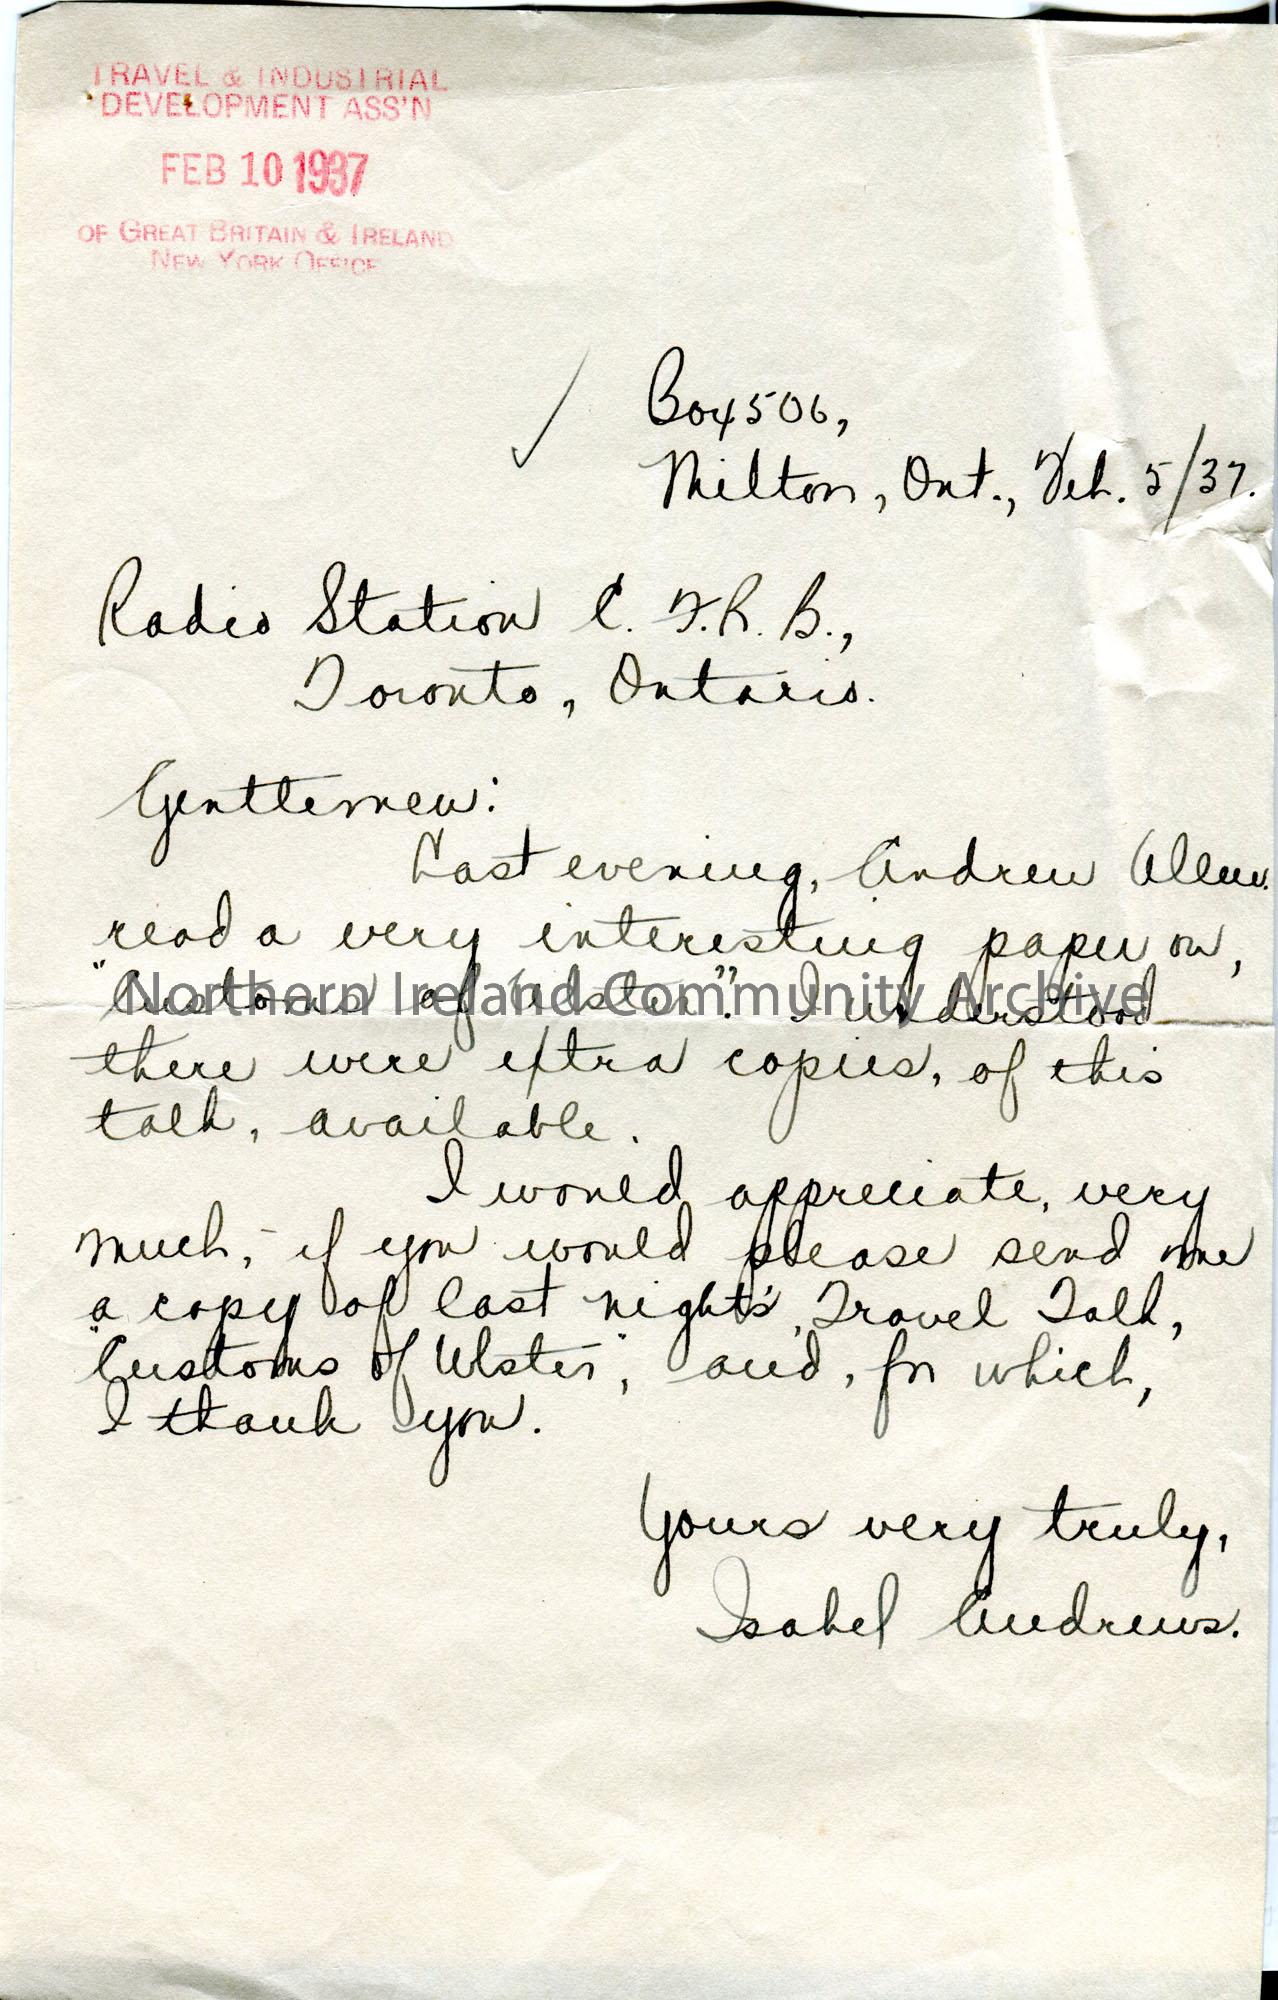 TRAVEL & INDUSTRIAL
DEVELOPMENT ASS'N
FEB 10 1937
OF GREAT BRITAIN & IRELAND
NEW YORK OFFICE
Box 506,
Milton, Ont., Feb. 5/37.
Radio Station C. F. R. B.,
Toronto, Ontario.
Gentlemen:
Last evening, Andrew Allen
read a very interesting paper on,
"Customs of Ulster". I understood
Northern Ireland Community Archive
there were extra copies, of this
talk, available.
I would appreciate, very
much, if you would please send me
a copy of last night's, Travel Talk,
"Customs of Ulster", and, for which,
I thank you.
Yours very truly,
Isabel Andrews.